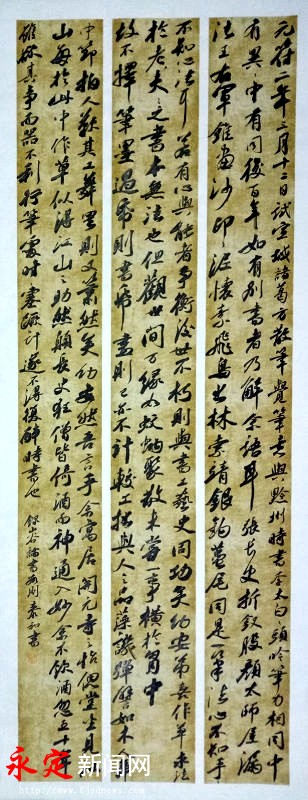 元符二年三月十二日試宣城諸葛方散筆覺筆意與黔州時書李太白々頭吟筆力相同中
有異々中有同後百年如有別書者乃解余語耳張長史折釵股顏太師屋漏
法王右軍錐畫沙印々泥懷素飛鳥出林索靖銀鉤蠆尾同是一筆法心不知手
不知心法耳若有心與能者爭衡後世不朽則與書工藝史同功矣幼安弟喜作草求法
於老夫之書本無法也但觀世間万緣如蚊蚋聚散未嘗一事橫於胸中
故不擇筆墨遇紙則書紙盡則已亦不計較工拙與人之品藻譏彈譬如木人舞
中節拍人歎其工舞罷則又蕭然矣幼安然吾言乎余寓居開元寺之怡偲堂坐見江
山每於此中作草似得江山之助然顛長史狂僧皆倚酒而神通入妙余不飲酒忽五十年
雖欲其事而器不利行筆處時蹇蹶計遂不得復醉時書也 錄山谷論書 袁和書
永定新闻网